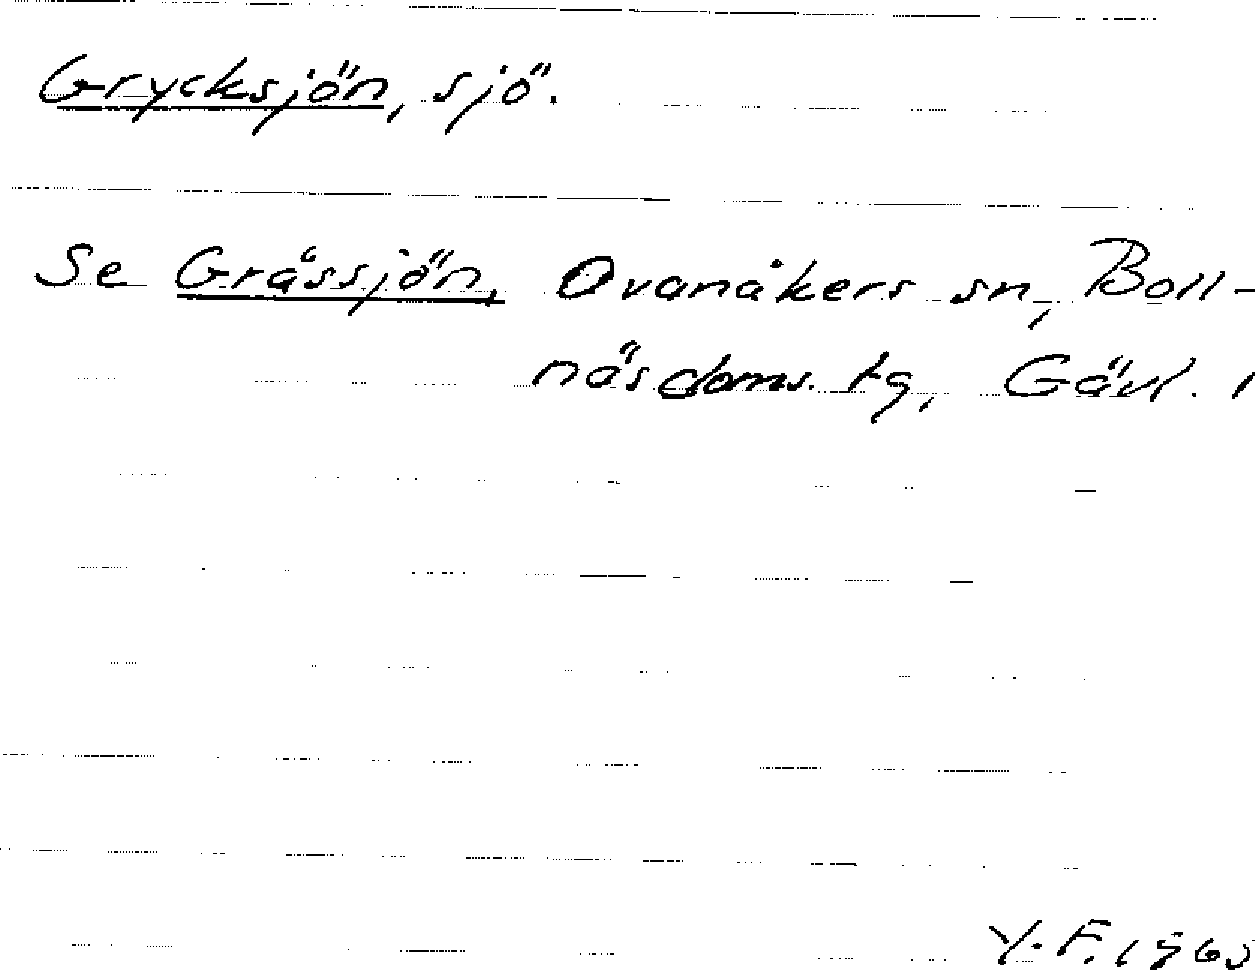 Grycksjön, sjö.
Se Gråssjön, Ovanåkers sn, Boll-
näs doms. tg, Gävl. l
Y. F. 1965